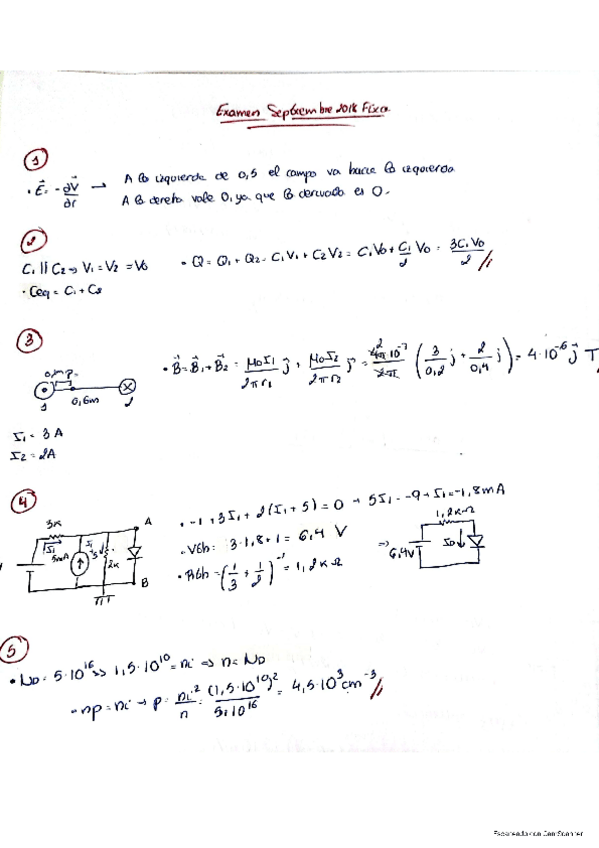 Examen Septiembre 2018 Física
1
· E⃗ = -∂V⃗/∂r → A la izquierda de 0,5 el campo va hacia la izquierda
A la dereta vale 0, ya que la derivada es 0.
2
C₁ || C₂ ⇒ V₁ = V₂ = V₀ · Q = Q₁ + Q₂ = C₁V₁ + C₂V₂ = C₁V₀ + C₁/2 V₀ = 3C₁V₀/2 //
· Ceq = C₁ + C₂
3
· B⃗ = B⃗₁ + B⃗₂ = μ₀I₁/2πr₁ j⃗ + μ₀I₂/2πr₂ j⃗ = 4π·10⁻⁷/2π (3/0,2 j + 2/0,4 j) = 4·10⁻⁶ j⃗ T
0,6m
1 2
I₁ = 3 A
I₂ = 2A
4
· -1 + 3I₁ + 2(I₁ + 5) = 0 → 5I₁ = -9 → I₁ = -1,8mA
3K I₁ 5mA 2K A B
· Vth: 3·1,8 + 1 = 6,4 V
⇒ 6,4V 1,2KΩ ID
· Rth = (1/3 + 1/2)⁻¹ = 1,2 KΩ
5
· ND = 5·10¹⁶ >> 1,5·10¹⁰ = ni ⇒ n = ND
· np = ni → p = ni²/n = (1,5·10¹⁰)²/5·10¹⁶ = 4,5·10³ cm⁻³ //
Escaneado con CamScanner